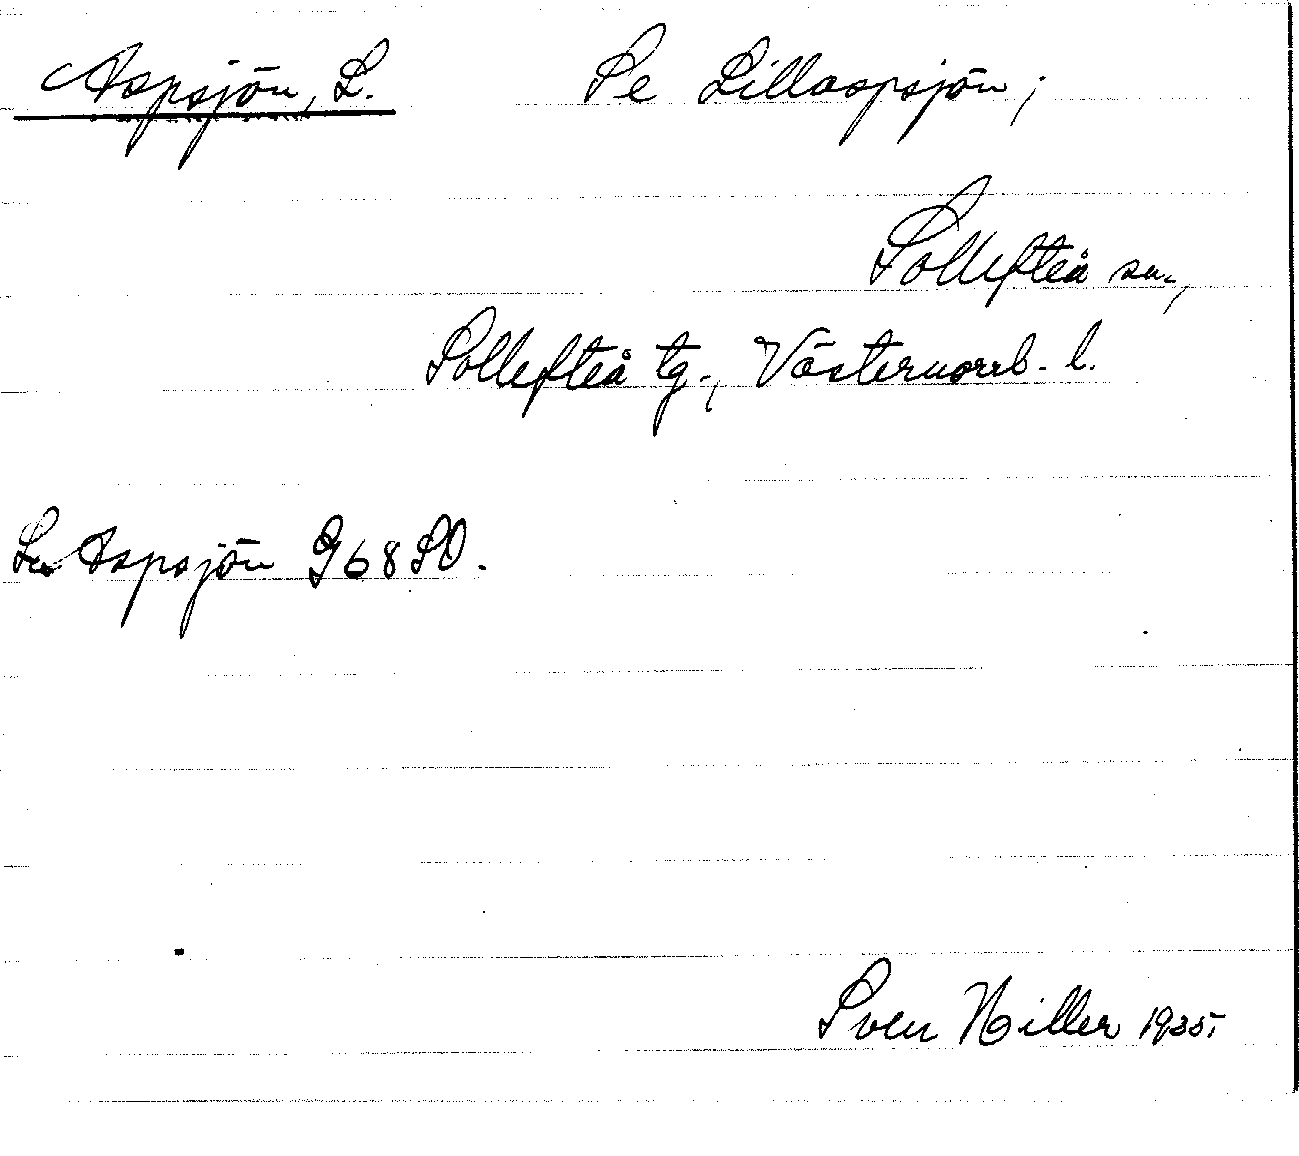 Aspsjön, L. Se Lillaspsjön;
Sollefteå sn.,
Sollefteå tg., Västernorrl. l.
L:a Aspsjön G68SO.
Sven Hiller 1935.